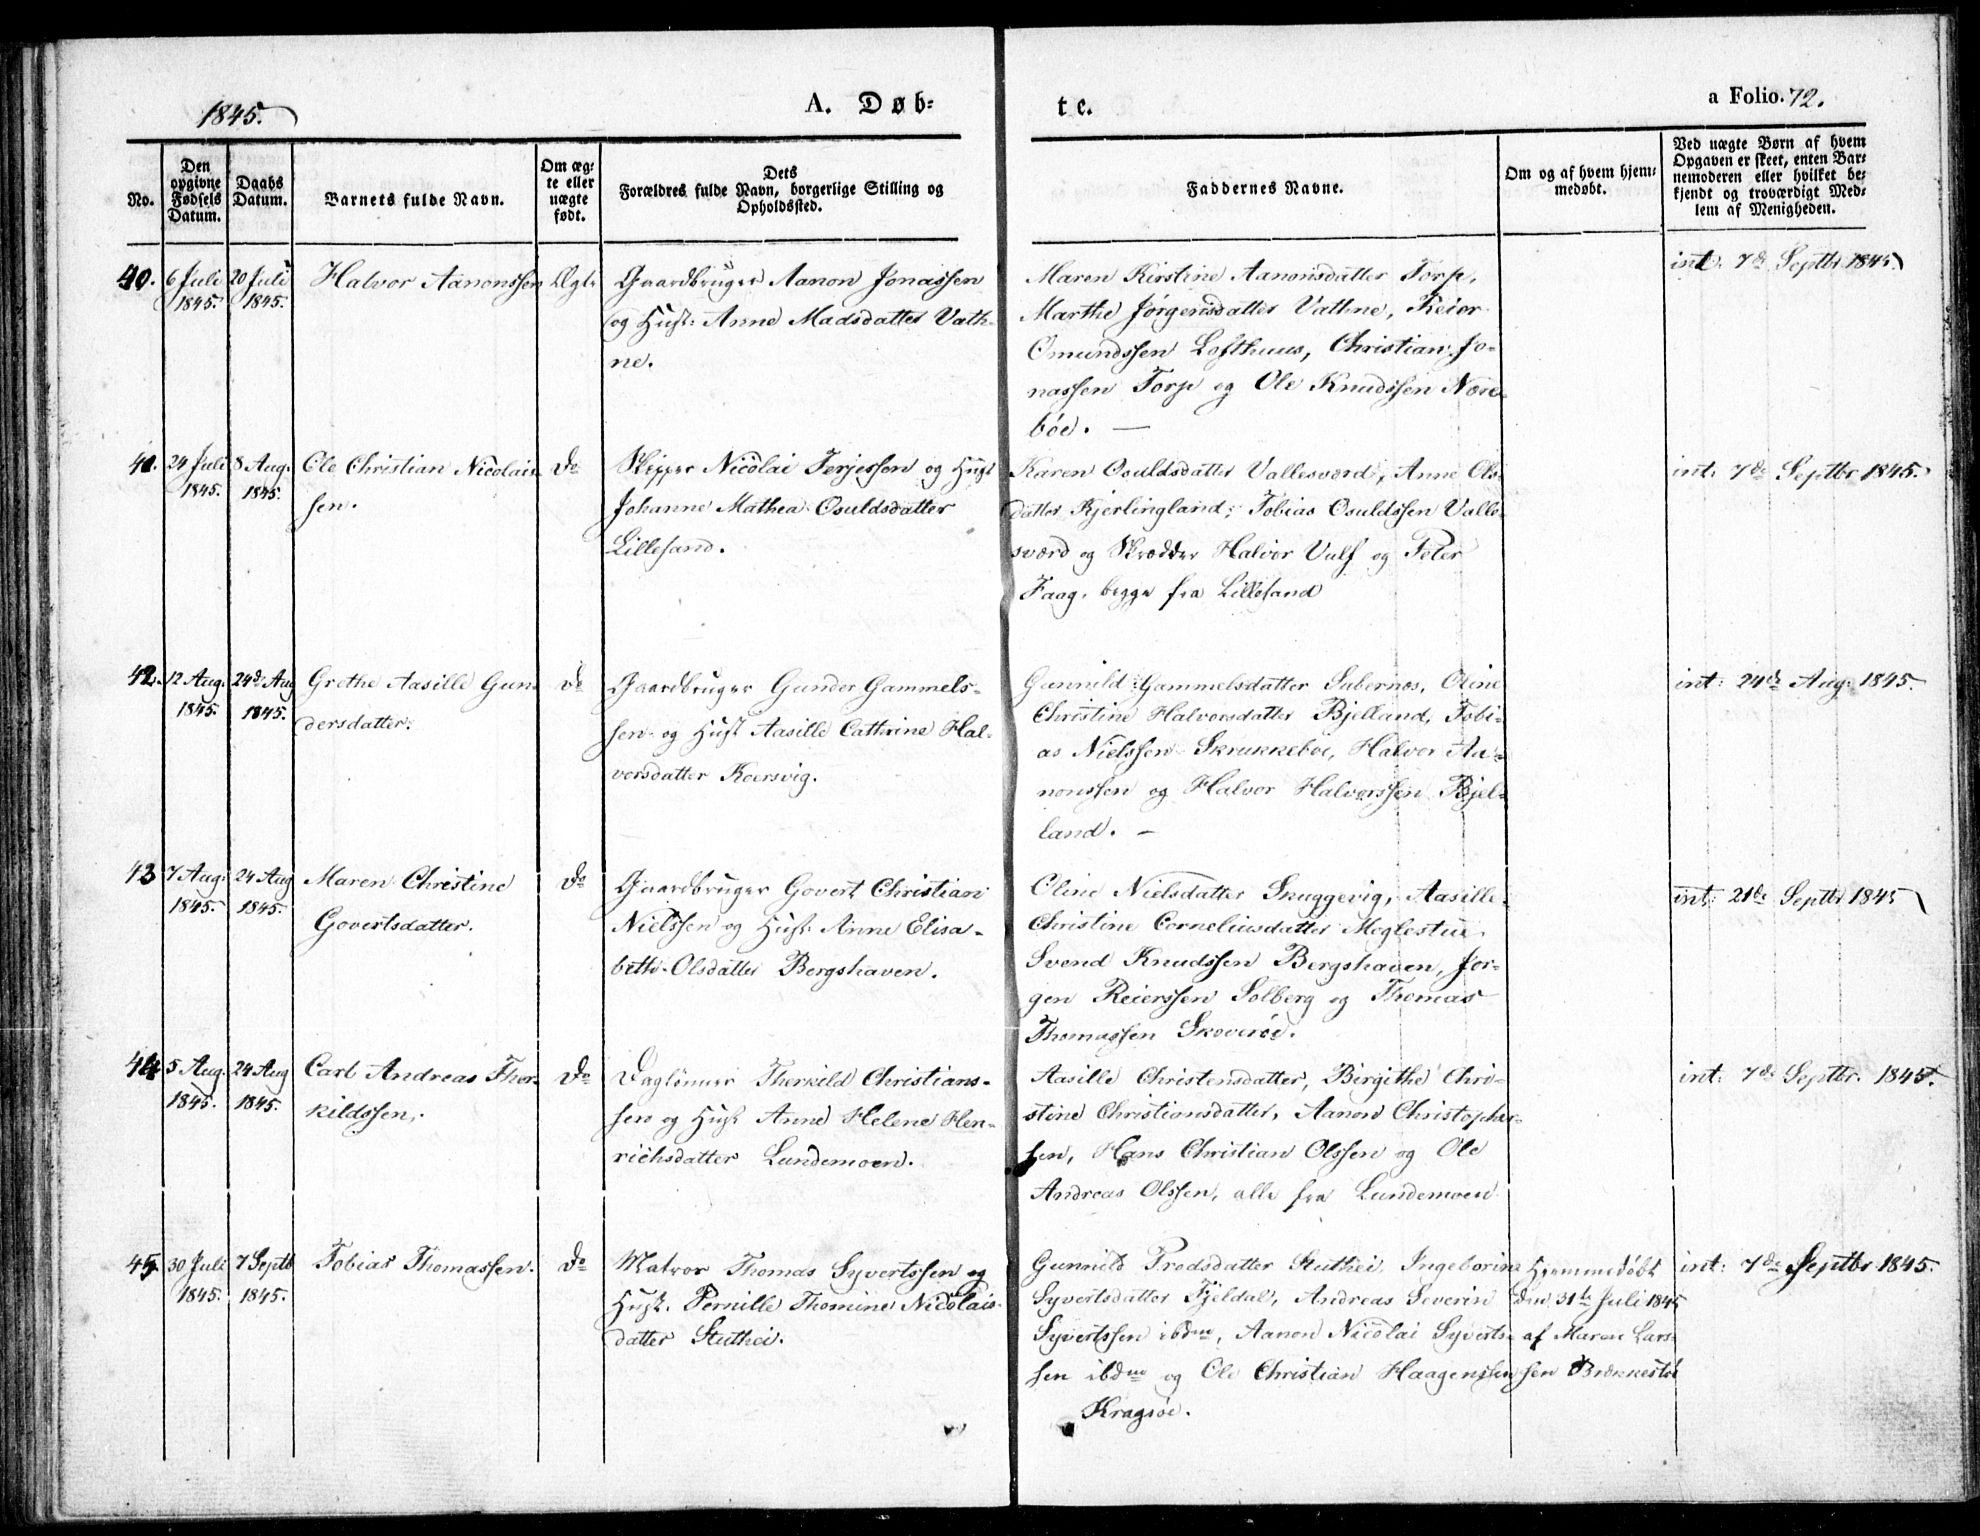 1845.
A. Døb-
te.
a Folio. 72.
No.
Den
opgivne
Fødsels
Datum.
Daabs
Datum.
Barnets fulde Navn.
Om æg-
te eller
uægte
født.
Dets
Forældres fulde Navn, borgerlige Stilling og
Opholdssted.
Faddernes Navne.
Om og af hvem hjem-
medøbt.
Ved uægte Børn af hvem
Opgaven er skeet, enten Bar-
nemoderen eller hvilket be-
kjendt og troværdigt Med-
lem af Menigheden.
40.
6 Juli
1845.
20 Juli
1845.
Halvor Aanonssen
Ægte
Gaardbruger Aanon Jonassen
og Hust: Anne Madsdatter Vath-
ne.
Maren Kirstine Aanonsdatter Torp,
Marthe Jørgensdatter Vathne, Reier
Omundssen Lofthuus, Christian Jo-
nassen Torp og Ole Knudssen Nore-
bøe. —
int: 7de Septbr 1845.
41.
24 Juli
1845.
8 Aug.
1845.
Ole Christian Nicolais-
sen.
Do
Skipper Nicolai Terjessen og Hust
Johanne Mathea Osuldsdatter
Lillesand.
Karen Osuldsdatter Vallesværd, Anne Ols-
datter Kjerlingland, Tobias Osuldssen Valle-
sværd og Skrædder Halvor Ulf og Peter
Faag, begge fra Lillesand
int: 7de Septbr 1845.
42.
12 Aug.
1845.
24de Aug
1845.
Grethe Aasille Gun-
dersdatter.
Do
Gaardbruger Gunder Gammels-
sen og Hust Aasille Cathrine Hal-
vorsdatter Koersvig.
Gunnild Gammelsdatter Tabernes, Oline
Christine Halvorsdatter Bjelland, Tobi-
as Nielssen Skrukkeboe, Halvor Aa-
nonssen og Halvor Halvorssen Bjel-
land. —
int: 24de Aug: 1845.
43
7 Aug:
1845.
24 Aug
1845.
Maren Christine
Govertsdatter.
Do
Gaardbruger Govert Christian
Nielssen og Hust: Anne Elisa-
beth Olsdatter Bergshaven.
Oline Nielsdatter Skuggevig, Aasille
Christine Corneliusdatter Moglestue
Svend Knudssen Bergshaven, Jør-
gen Reierssen Solberg og Thomas
Thomassen Skoverøe.
int: 21de Septbr 1845
44
5 Aug.
1845.
24 Aug
1845.
Carl Andreas Ther-
kildssen.
Do
Daglønner Therkild Christians-
sen og Hust Anne Helene Hen-
richsdatter Lundemoen.
Aasille Christensdatter, Birgithe Chri-
stine Christiansdatter, Aanon Christopher-
sen, Hans Christian Olssen og Ole
Andreas Olssen, alle fra Lundemoen
int: 7de Septbr. 1845.
45.
30 Juli
1845.
7 Septb
1845.
Tobias Thomassen.
Do
Matros Thomas Syvertssen og
Hust. Pernille Thomine Nicolais-
datter Stuthei.
Gunnild Trodsdatter Stuthei, Ingeborine
Syvertsdatter Fjeldal, Andreas Severin
Syvertssen ibdm, Aanon Nicolai Syverts-
sen ibdm og Ole Christian Haagenssen
Kragsøe.
Hjemmedøbt
den 31te Juli 1845
af Maren Lars-
sen Brækkestø
int: 7de Septbr 1845.